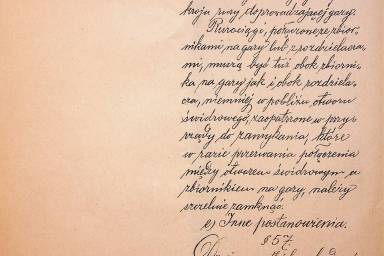 kroju rury doprowadzającej gazy.
Rurociągi, połączone ze zbior-
nikami na gazy lub z rozdzielacza-
mi, muszą być tuż obok zbiorni-
ka na gazy jak i obok rozdziela-
cza, niemniej w pobliżu otworu
świdrowego, zaopatrzone w przy-
rządy do zamykania, które
w razie przerwania połączenia
między otworem świdrowym a
zbiornikiem na gazy, należy
szczelnie zamknąć.
e) Inne postanowienia.
§ 57.